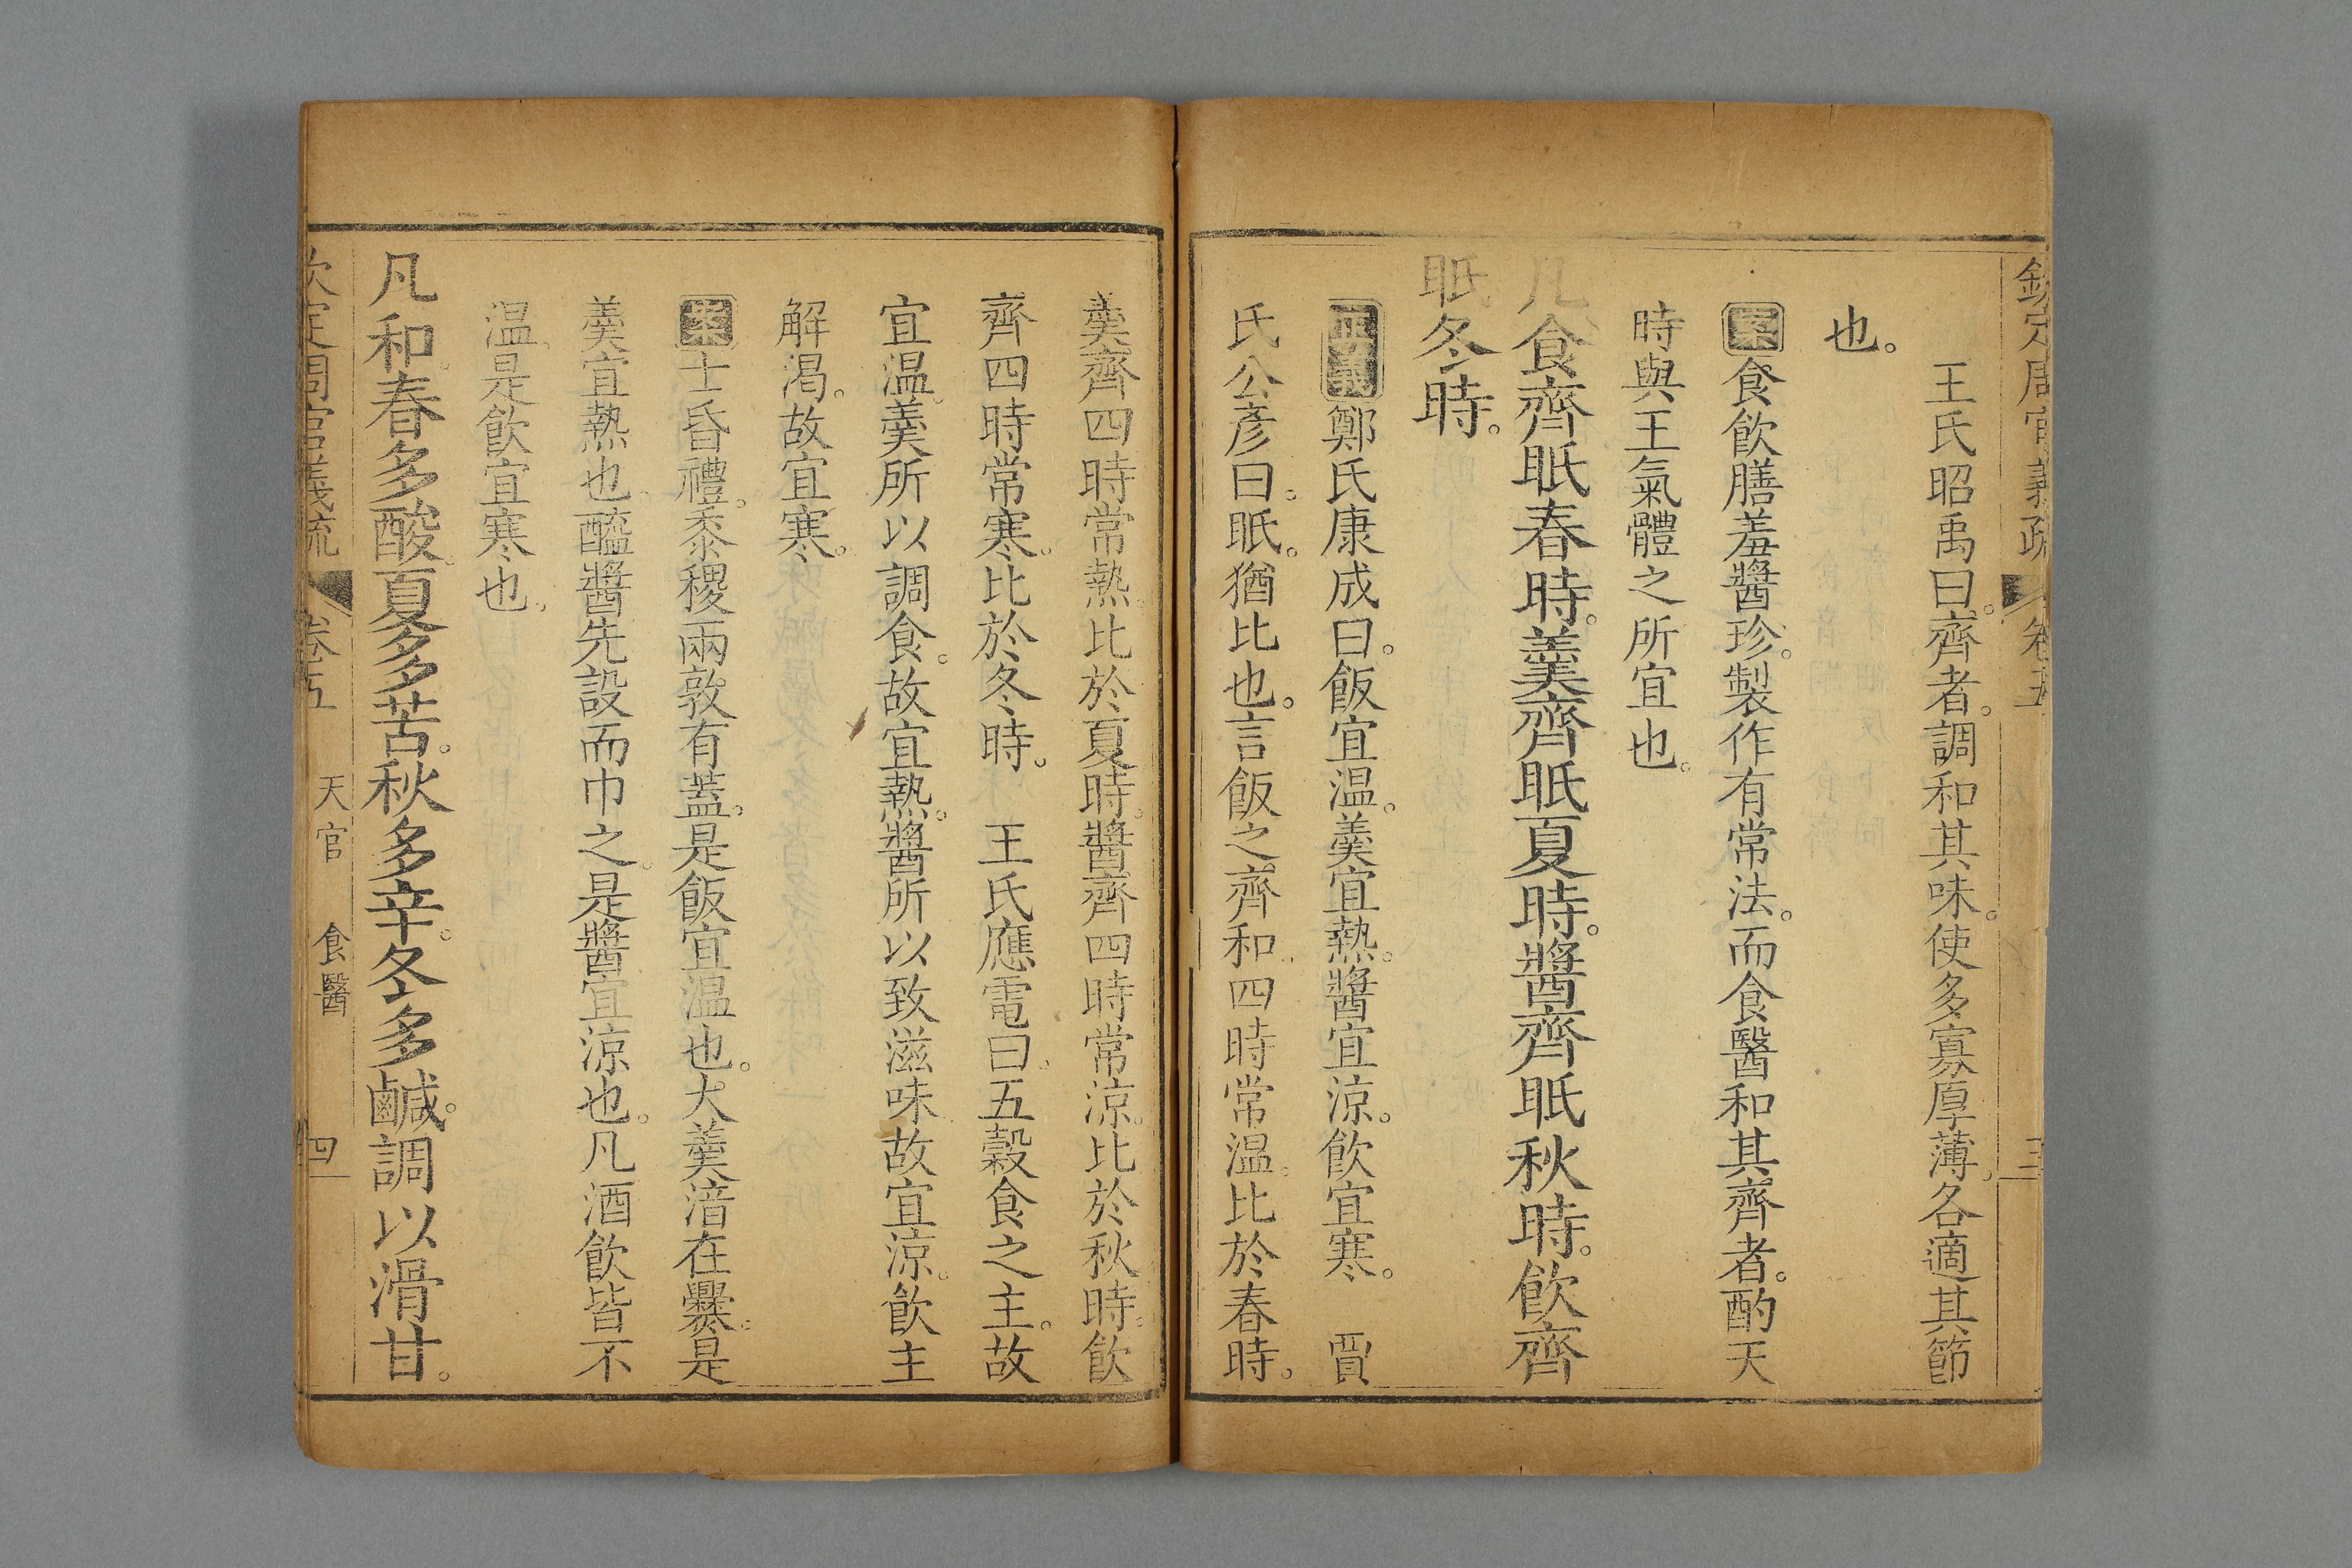 欽定周官義疏 卷五 三
王氏昭禹曰。齊者。調和其味。使多寡厚薄。各適其節
也。
案食飲膳羞醬珍。製作有常法。而食醫和其齊者。酌天
時與王氣體之所宜也。
凡食齊眡春時。羹齊眡夏時。醬齊眡秋時。飲齊
眡冬時。
正義鄭氏康成曰。飯宜温。羹宜熱。醬宜涼。飲宜寒。 賈
氏公彥曰。眡。猶比也。言飯之齊和。四時常温。比於春時。
羹齊四時常熱。比於夏時。醬齊四時常涼。比於秋時。飲
齊四時常寒。比於冬時。 王氏應電曰。五穀食之主。故
宜温。羹所以調食。故宜熱。醬所以致滋味。故宜涼。飲主
解渴。故宜寒。
案士昏禮。黍稷兩敦有蓋。是飯宜温也。大羹湆在爨。是
羹宜熱也。醯醬先設而巾之。是醬宜涼也。凡酒飲皆不
温。是飲宜寒也。
凡和。春多酸。夏多苦。秋多辛。冬多鹹。調以滑甘。
欽定周官義疏 卷五 天官 食醫 四